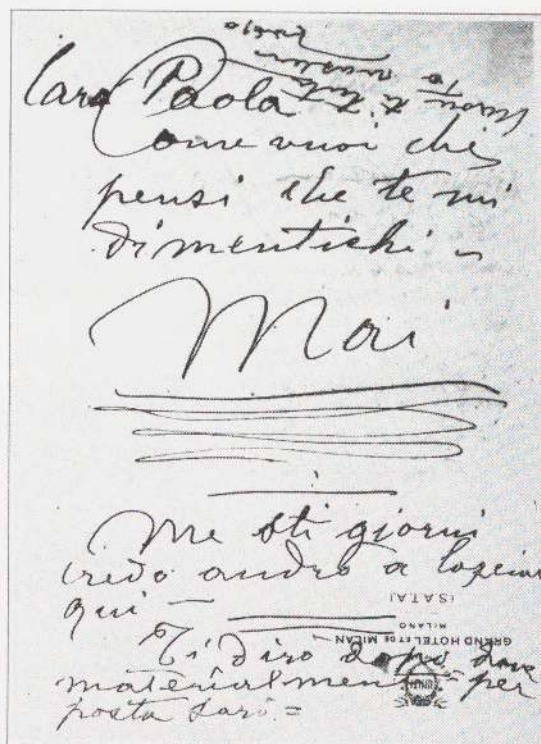 Cara Paola
Come vuoi che
pensi che te mi
dimentichi =
Mai
sti giorni
credo andrò a
qui —
Ti dirò dopo dove
materialmente per
posta sarò =
GRAND HOTEL ET DE MILAN
MILANO
(SATA)